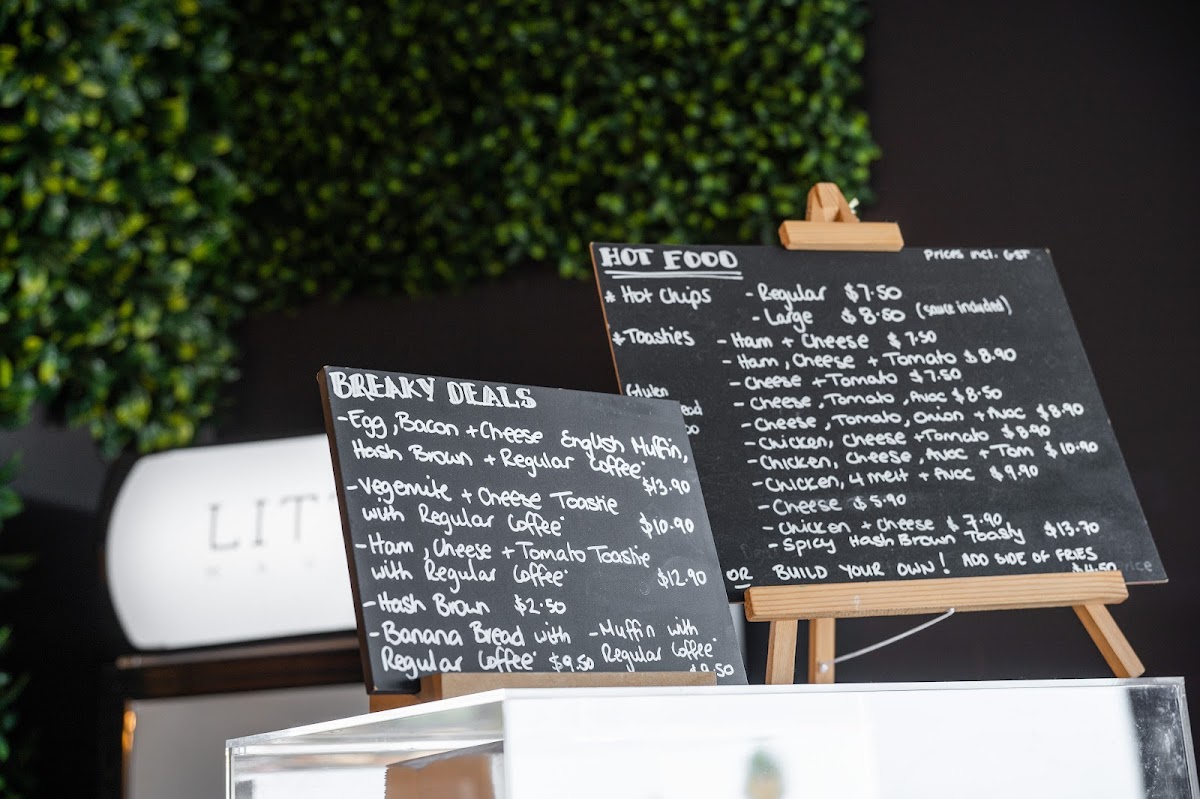 LIT
BREAKY DEALS
-Egg, Bacon + Cheese English Muffin,
Hash Brown + Regular Coffee*
$13.90
-Vegemite + Cheese Toastie
with Regular Coffee* $10.90
-Ham, Cheese + Tomato Toastie
with Regular Coffee* $12.90
-Hash Brown $2.50
-Banana Bread with
Regular Coffee* $9.50
-Muffin with
Regular Coffee*
HOT FOOD
Prices incl. GST
* Hot Chips - Regular $7.50
- Large $8.50 (sauce included)
*Toasties - Ham + Cheese $7.50
- Ham, Cheese + Tomato $8.90
- Cheese + Tomato $7.50
- Cheese, Tomato, Avoc $8.50
- Cheese, Tomato, Onion + Avoc $8.90
- Chicken, Cheese + Tomato $8.90
- Chicken, Cheese, Avoc + Tom $10.90
- Chicken, 4 melt + Avoc $9.90
- Cheese $5.90
- Chicken + Cheese $7.90
- Spicy Hash Brown Toasty $13.70
Gluten
OR BUILD YOUR OWN! ADD SIDE OF FRIES
$4.50